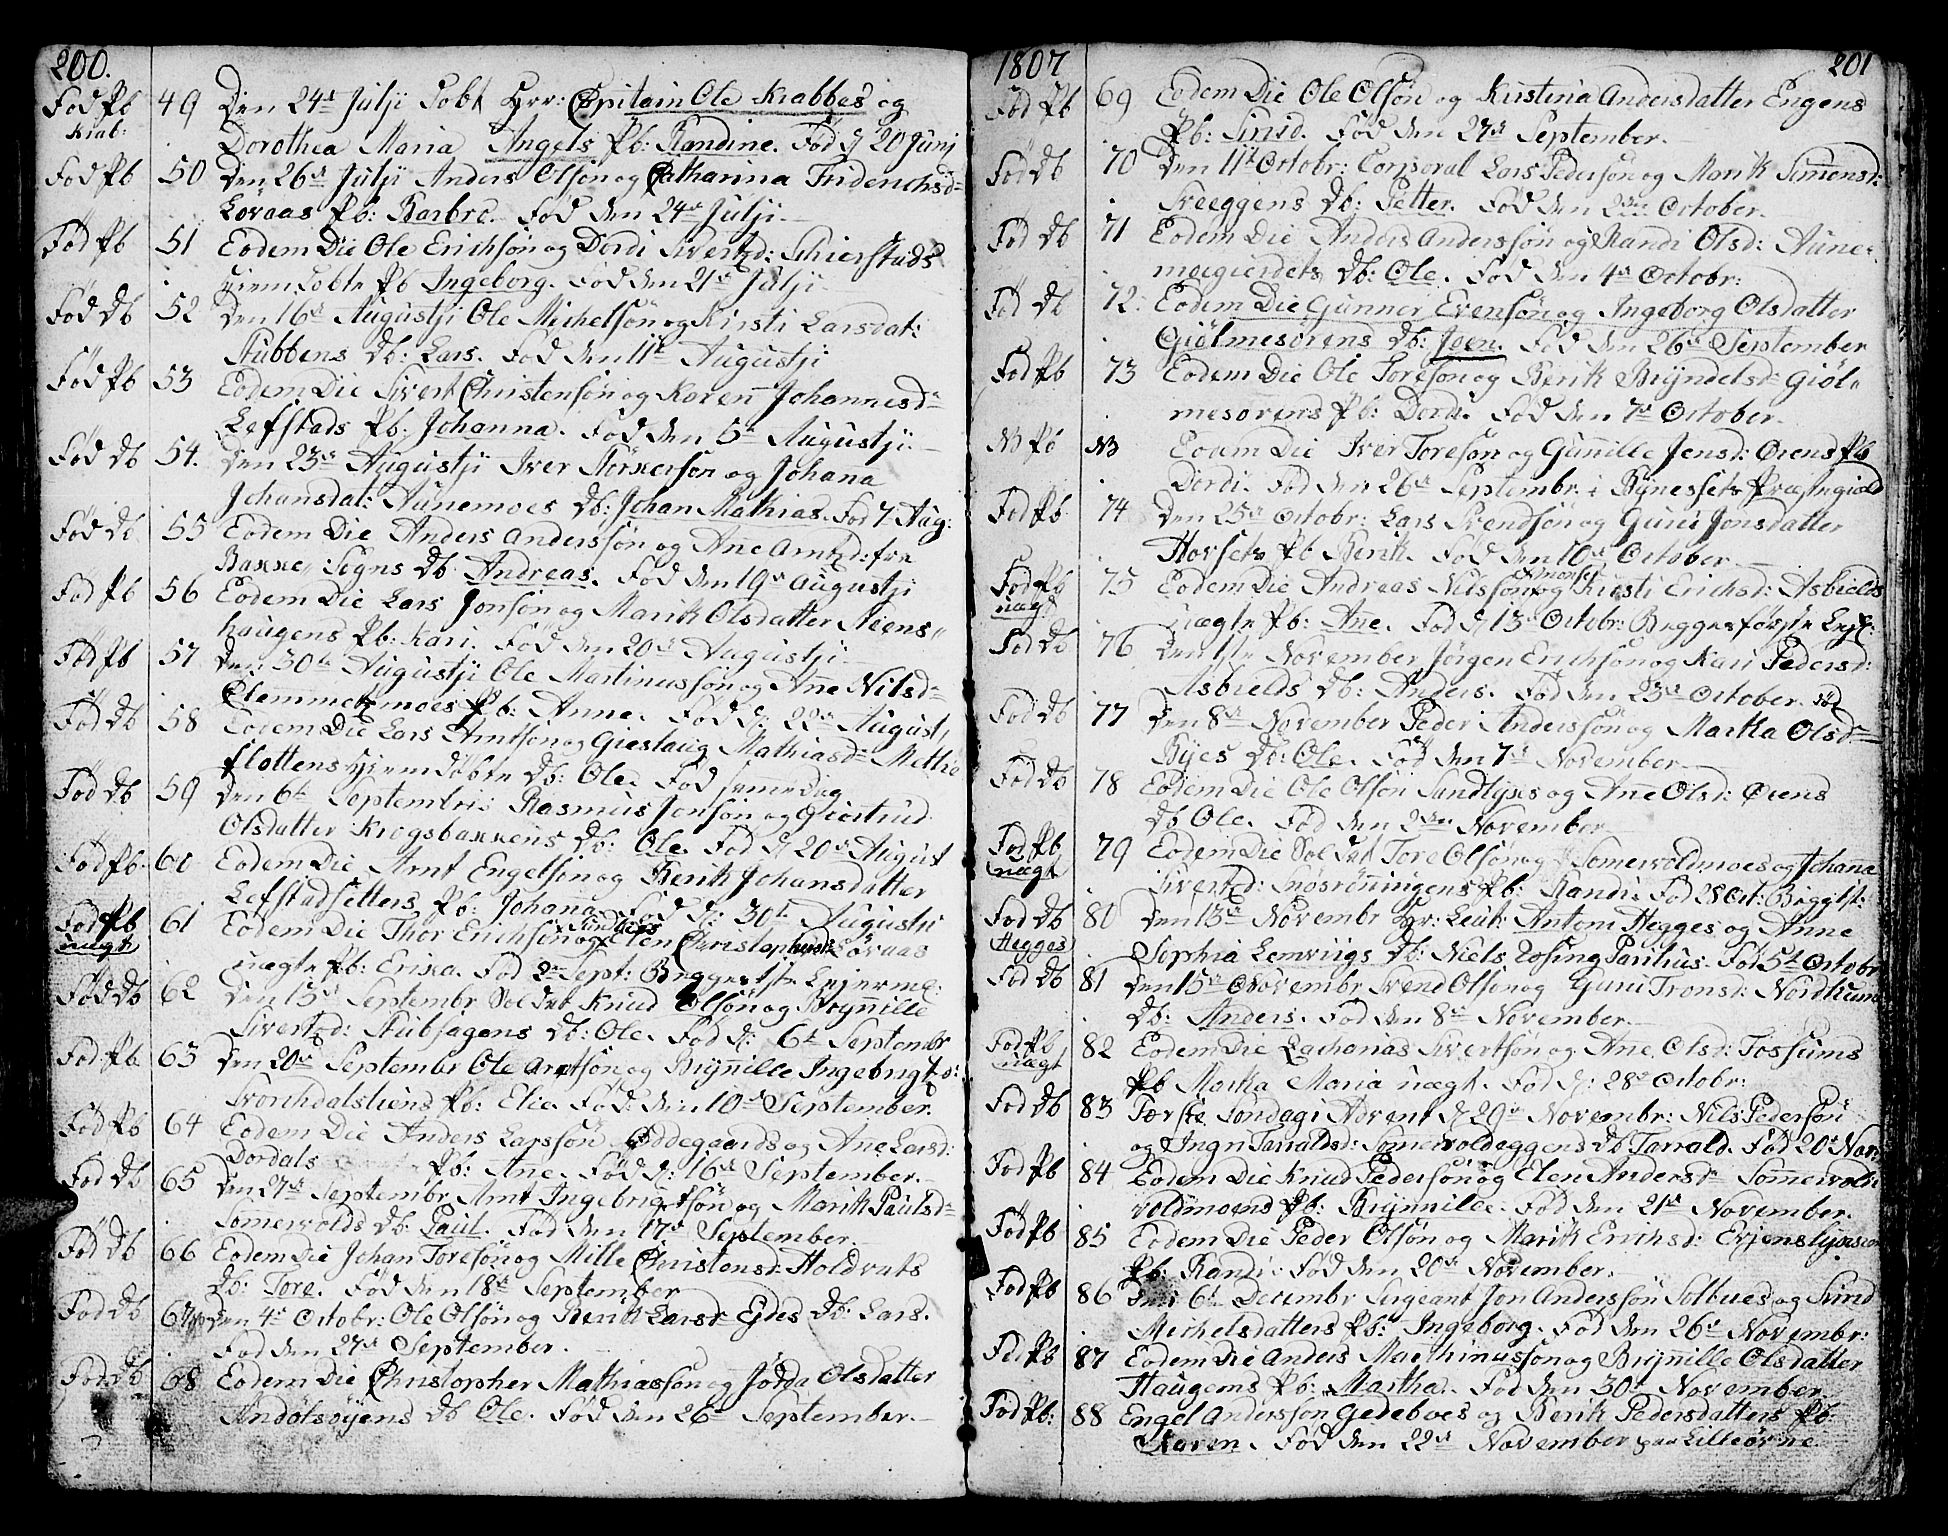 200.
Fød Pb 49 Den 24de Julji Døbt Hrr: Capitain Ole Krabbes og
Krab: Dorothea Maria Angels Pb: Randine. Fød d: 20 Junj
Fød Pb 50 Den 26de Julji Anders Olsøn og Catharina Friderichsd=
Løvaas Pb: Barbro. Fød den 24de Julji.
Fød Pb 51 Eodem Die Ole Erichsøn og Dordi Sivertsd: Schierstads
hiemdøbte Pb Ingeborg. Fød den 21de Julji
Fød Db 52 Den 16de Augustji Ole Michelsøn og Kirsti Larsdat:
Stubbens Db: Lars. Fød den 11te Augustji
Fød Pb 53 Eodem Die Sivert Christensøn og Karen Johannesd=
Lefstads Pb: Johanna. Fød den 5te Augustji.
Fød Db 54. Den 23de Augustji Iver Størkersøn og Johana
Johansdat: Aunemoes Db: Johan Mathias. Fød 7. Aug:
Fød Db 55 Eodem Die Anders Anderssøn og Ane Amtsd: fra
Bakke Sogns Db. Andreas. Fød den 19de Augustji
Fød Pb 56 Eodem Die Lars Jonsøn og Marik Olsdatter Steens
haugens Pb: Kari. Fød den 20de Augustji
Fød Pb 57 Den 30te Augustji Ole Martinussøn og Ane Nilsd=
Clemmetsmoes Pb: Anne. Fød d: 22de August,
Fød Db 58 Eodem Die Lars Arntsøn og Gieslaug Mathiasd= Methe
flottens hiemdøbte Db: Ole. Fød samme Dag
Fød Db 59 Den 6te Septembris Rasmus Jonsøn og Giertrud
Olsdatter Krogsbakkens Db: Ole. Fød d: 20de August
Fød Pb. 60 Eodem Die Arnt Engelsøn og Berit Johansdatter
Lefstadsetters Pb: Johana. Fød d: 30te Augustji
Fød Pb 61 Eodem Die Thor Erichsøn og Elen Christophersd Løvaas
uægt uægte Pb: Erika. Fød 2de Sept: Begges 1ste Lejerm:
Fød Db 62 Den 13de Septembr Sol: det Knud Olsøn og Brynnille
Sivertsd: Stubsagens Db: Ole. Fød d: 6te Septembr
Fød Pb. 63 Den 20de Septembr Ole Arntsøn og Brynille Ingebrigtsd:
Tronhdalsliens Pb: Elie. Fød: den 10de September.
Fød Pb 64 Eodem Die Anders Larssøn Øddegaards og Ane Larsd:
Dordals Pb: Ane. Fød d: 16de September.
Fød Db 65 Den 27de Septembr Arnt Ingebrigtsøn og Marik Paulsd=
Somervolds Db: Paul. Fød den 17de September.
Fød Db 66 Eodem Die Johan Toresøn og Mille Christensd: Holdvats
Db: Tore. Fød den 18de September
Fød Db 67 Den 4de Octobr: Ole Olsøn og Berit Larsd Ejdes Db: Lars.
Fød den 27de September.
Fød Db 68 Eodem Die Christopher Mathiassøn og Jorda Olsdatter
Andølsøyens Db Ole. Fød den 26de September.
1807 201
Fød Pb 69 Eodem Die Ole Olsøn og Kristina Andersdatter Engens
Pb: Sirid. Fød den 27de September.
Fød Db 70 Den 11te Octobr: Corporal Lars Pedersøn og Marik Simensd:
Sreeggens Db: Petter. Fød den 2den October.
Fød Db 71 Eodem Die Anders Anderssøn og Randi Olsd: Aune-
moegierdets Db: Ole. Fød den 4de Octobr:
Fød Db 72: Eodem Die Gunner Evensøn og Ingeborg Olsdatter
Giølmesørens Db: Joen. Fød den 26de September
Fød Pb 73 Eodem Die Ole Toresøn og Berik Bryndelsd= Giøl=
mesørens Pb: Dordi. Fød den 7de October.
NB Pb NB Eodem Die Iver Toresøn og Gunille Jensd: Ørens Pb
Dordi. Fød den 26de Septembr. i Bynessets Præstegield
Fød Pb 74 Den 25de Octobr: Lars Svendsøn og Guru Jonsdatter
Horsets Pb Berit. Fød den 10de October
Fød Pb 75 Eodem Die Andreas Nilssøn og Kirsti Erichsd: Asbiells
uægt uægte Pb: Ane. Fød d: 13de Octobr: Begges første Lejr:
Fød Db 76 Den 1ste November Jørgen Erichsøn og Kari Pedersd:
Asbields Db: Anders. Fød den 23de October.
Fød Db 77 Den 8de November Peder Anderssøn og Martha Olsd=
Byes Db: Ole. Fød den 7de November
Fød Db 78 Eodem Die Ole Olsøn Sandlykes og Ane Olsd: Ørens
Db Ole. Fød den 2den November
Fød Pb 79 Eodem Die Sol: det Tore Olsøn Somervoldmoes og Johana
uægt Sivertsd: Snøsrønningens Pb: Randi. Fød 28 Oct: Begg 1st:
Fød Db 80 Den 13de Novembr Hr: Leut: Antoni Hegges og Anne
Hegges Sophia Lemviigs Db: Niels Rosing Parilius. Fød 5te Octobr
Fød Db 81 Den 15de Novembr Svend Olsøn og Guru Tronsd: Nordtumm
Db: Anders. Fød den 8de November.
Fød Pb 82 Eodem Die Zacharias Sivertsøn og Ane Olsd: Fossums
uægt Pb Martha Maria uægt. Fød d: 28de Octobr:
Fød Db 83 Første Søndag i Advent d: 29de Novembr: Nils Pedersøn
og Ingri Tarralds: Somervoldeggens Db Tarrald. Fød 20de Nov:
Fød Pb 84 Eodem Die Knud Pedersøn og Elen Andersd= Sommervold
voldmoens Pb: Brynnille. Fød den 21de November.
Fød Pb 85 Eodem Die Peder Olsøn og Marik Erichsd: Evjenslykien
Pb: Randi. Fød den 20de November.
Fød Pb 86 Den 6te Decembr Sergeant Jon Anderssøn Solbues og Sirid
Michelsdatters Pb: Ingeborg. Fød den 26de Novembr:
Fød Pb 87 Eodem Die Anders Marthinussøn og Brynille Olsdatter
Haugens Pb: Martha. Fød den 30te November.
Fød Pb: 88 Engel Anderssøn Gedeboes og Berik Pedersdatters Pb:
Karen. Fød den 22de November paa Lilleørne